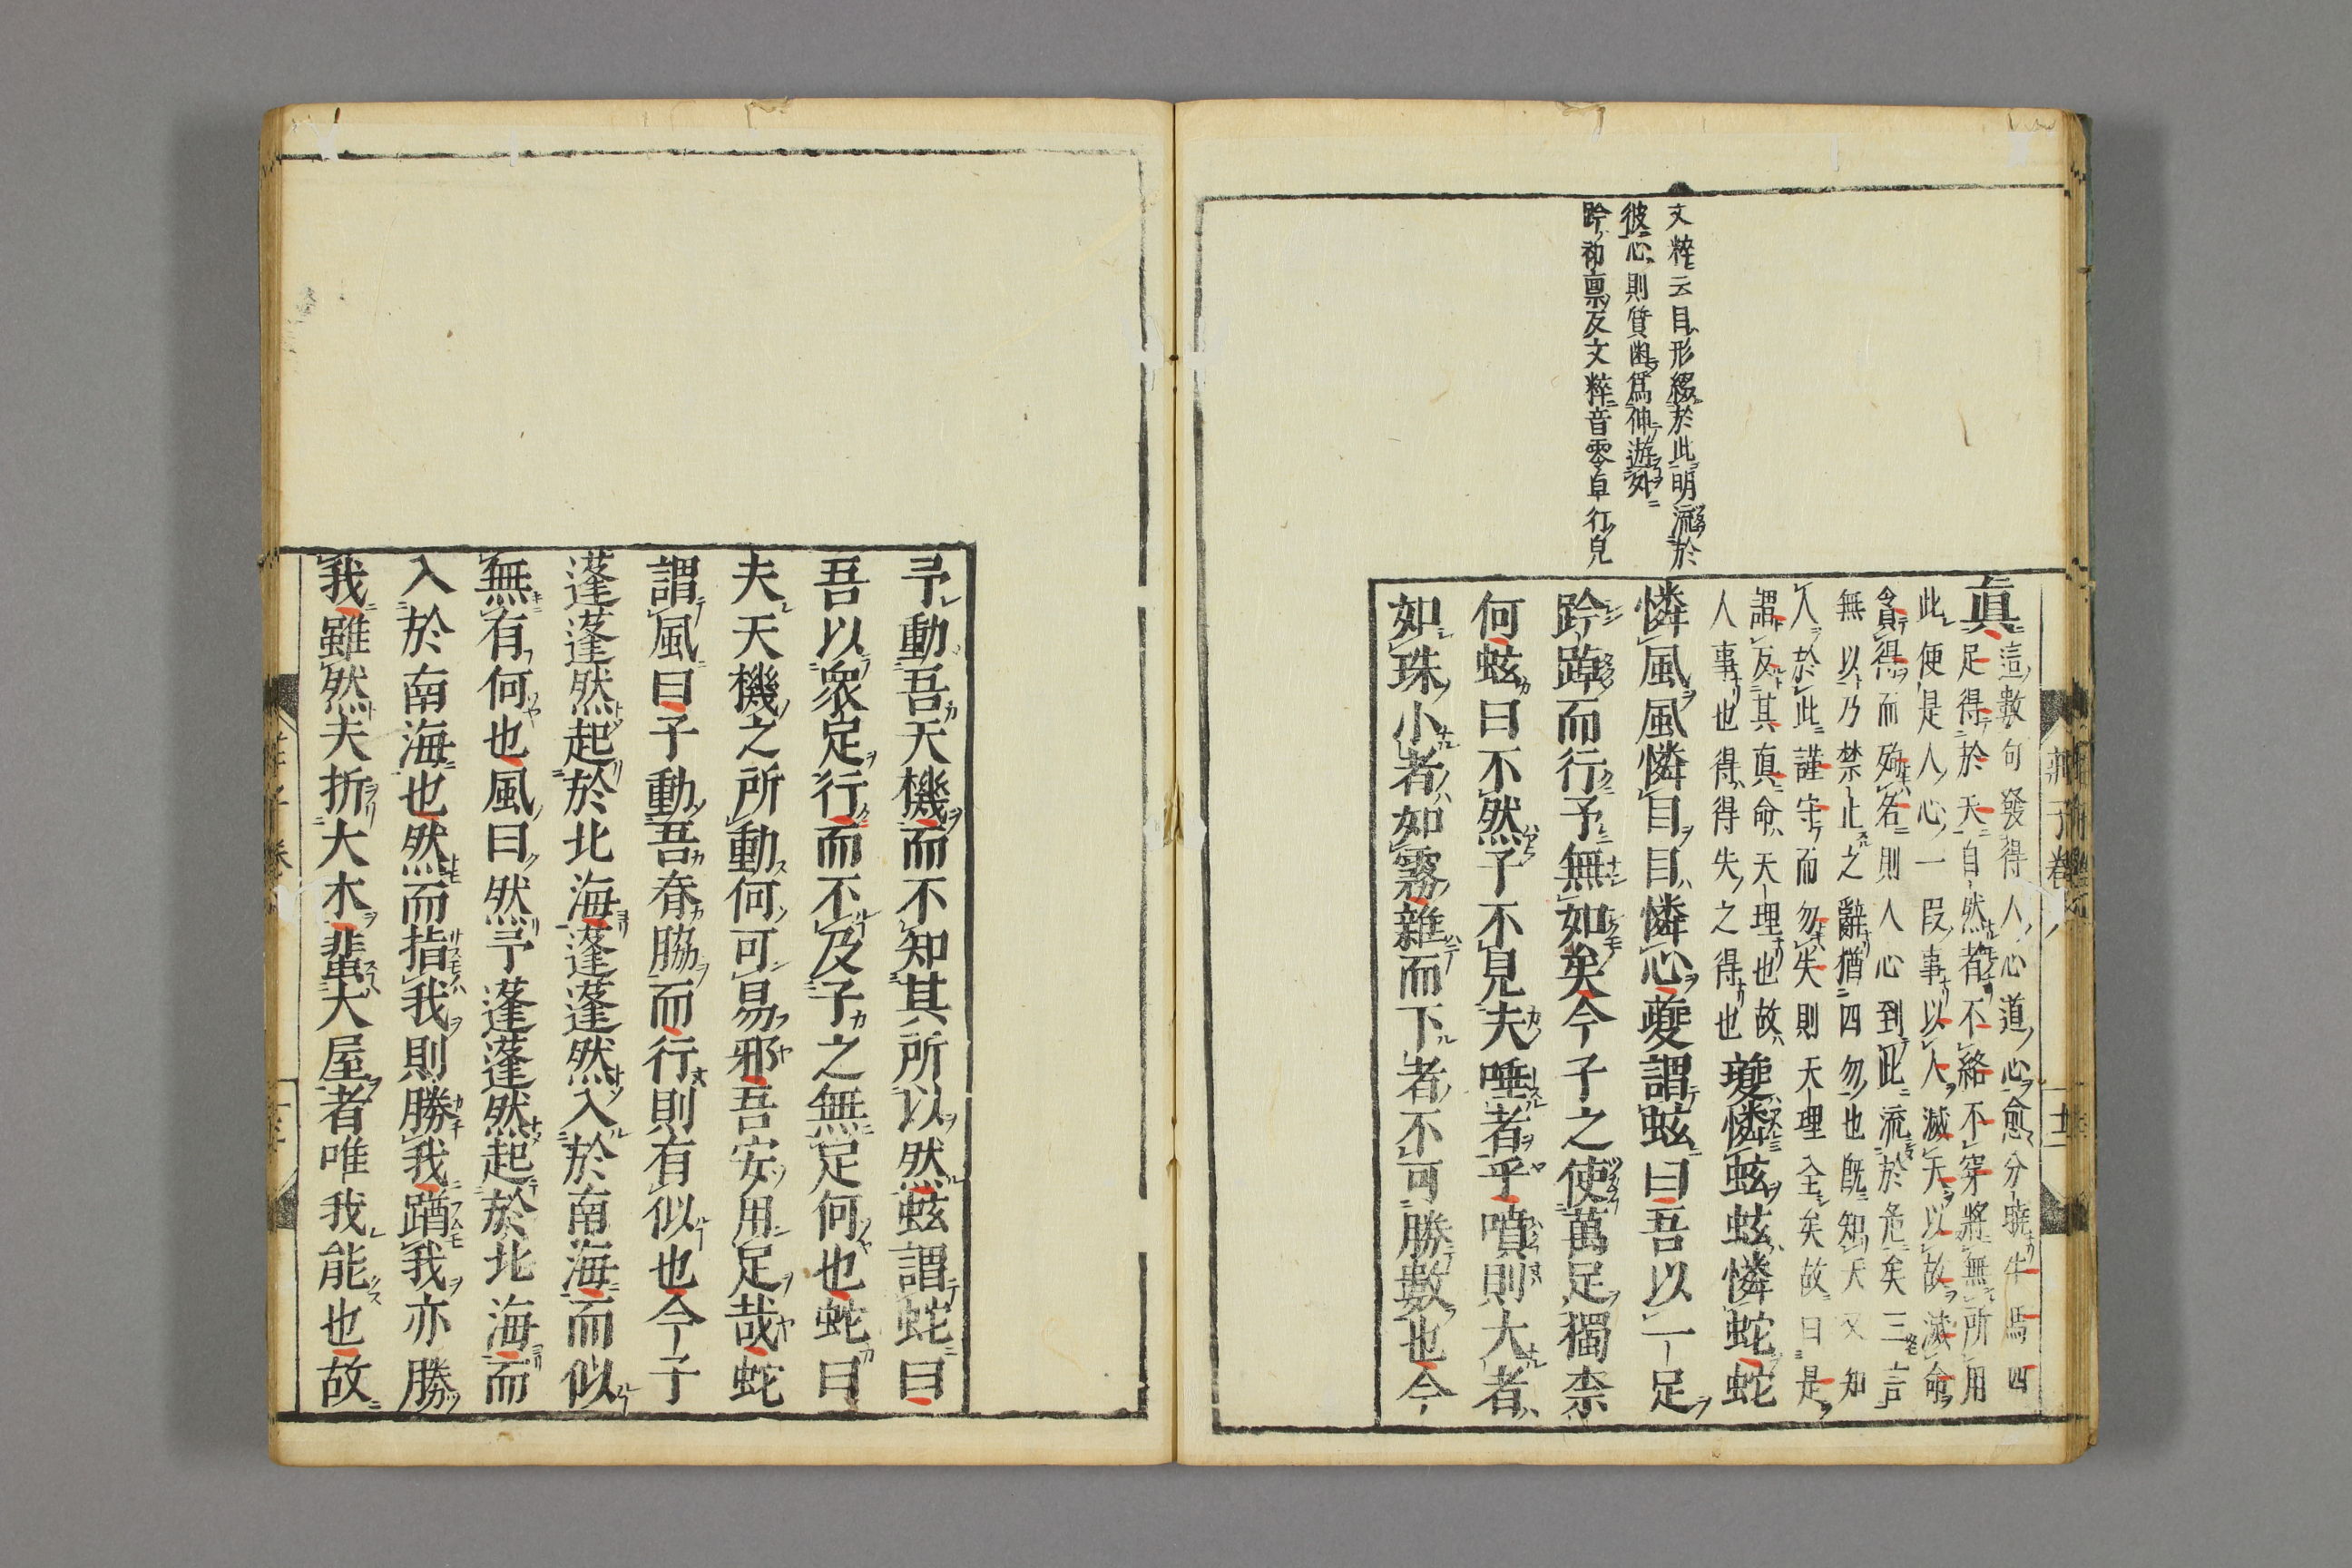 文粹云目形綴於此明流於
彼心則質幽爲神遊外
趻初稟反文粹音零卓行皃
真這數句發得人心道心愈分曉牛馬四
足得於天自然者不絡不穿將無所用
此便是人心一段事以人滅天以故滅命
貪得而殉名則人心到此流於危矣三言
無以乃禁止之辭猶四勿也既知天又知
人於此謹守而勿失則天理全矣故曰是
謂反其真命天理也故
人事也得得失之得也夔憐蚿蚿憐蛇蛇
憐風風憐目目憐心夔謂蚿曰吾以一足
趻踔而行予無如矣今子之使萬足獨柰
何蚿曰不然子不見夫唾者乎噴則大者
如珠小者如霧雜而下者不可勝數也今
予動吾天機而不知其所以然蚿謂蛇曰
吾以衆足行而不及子之無足何也蛇曰
夫天機之所動何可易邪吾安用足哉蛇
謂風曰予動吾脊脇而行則有似也今子
蓬蓬然起於北海蓬蓬然入於南海而似
無有何也風曰然予蓬蓬然起於北海而
入於南海也然而指我則勝我䠓我亦勝
我雖然夫折大木蜚大屋者唯我能也故